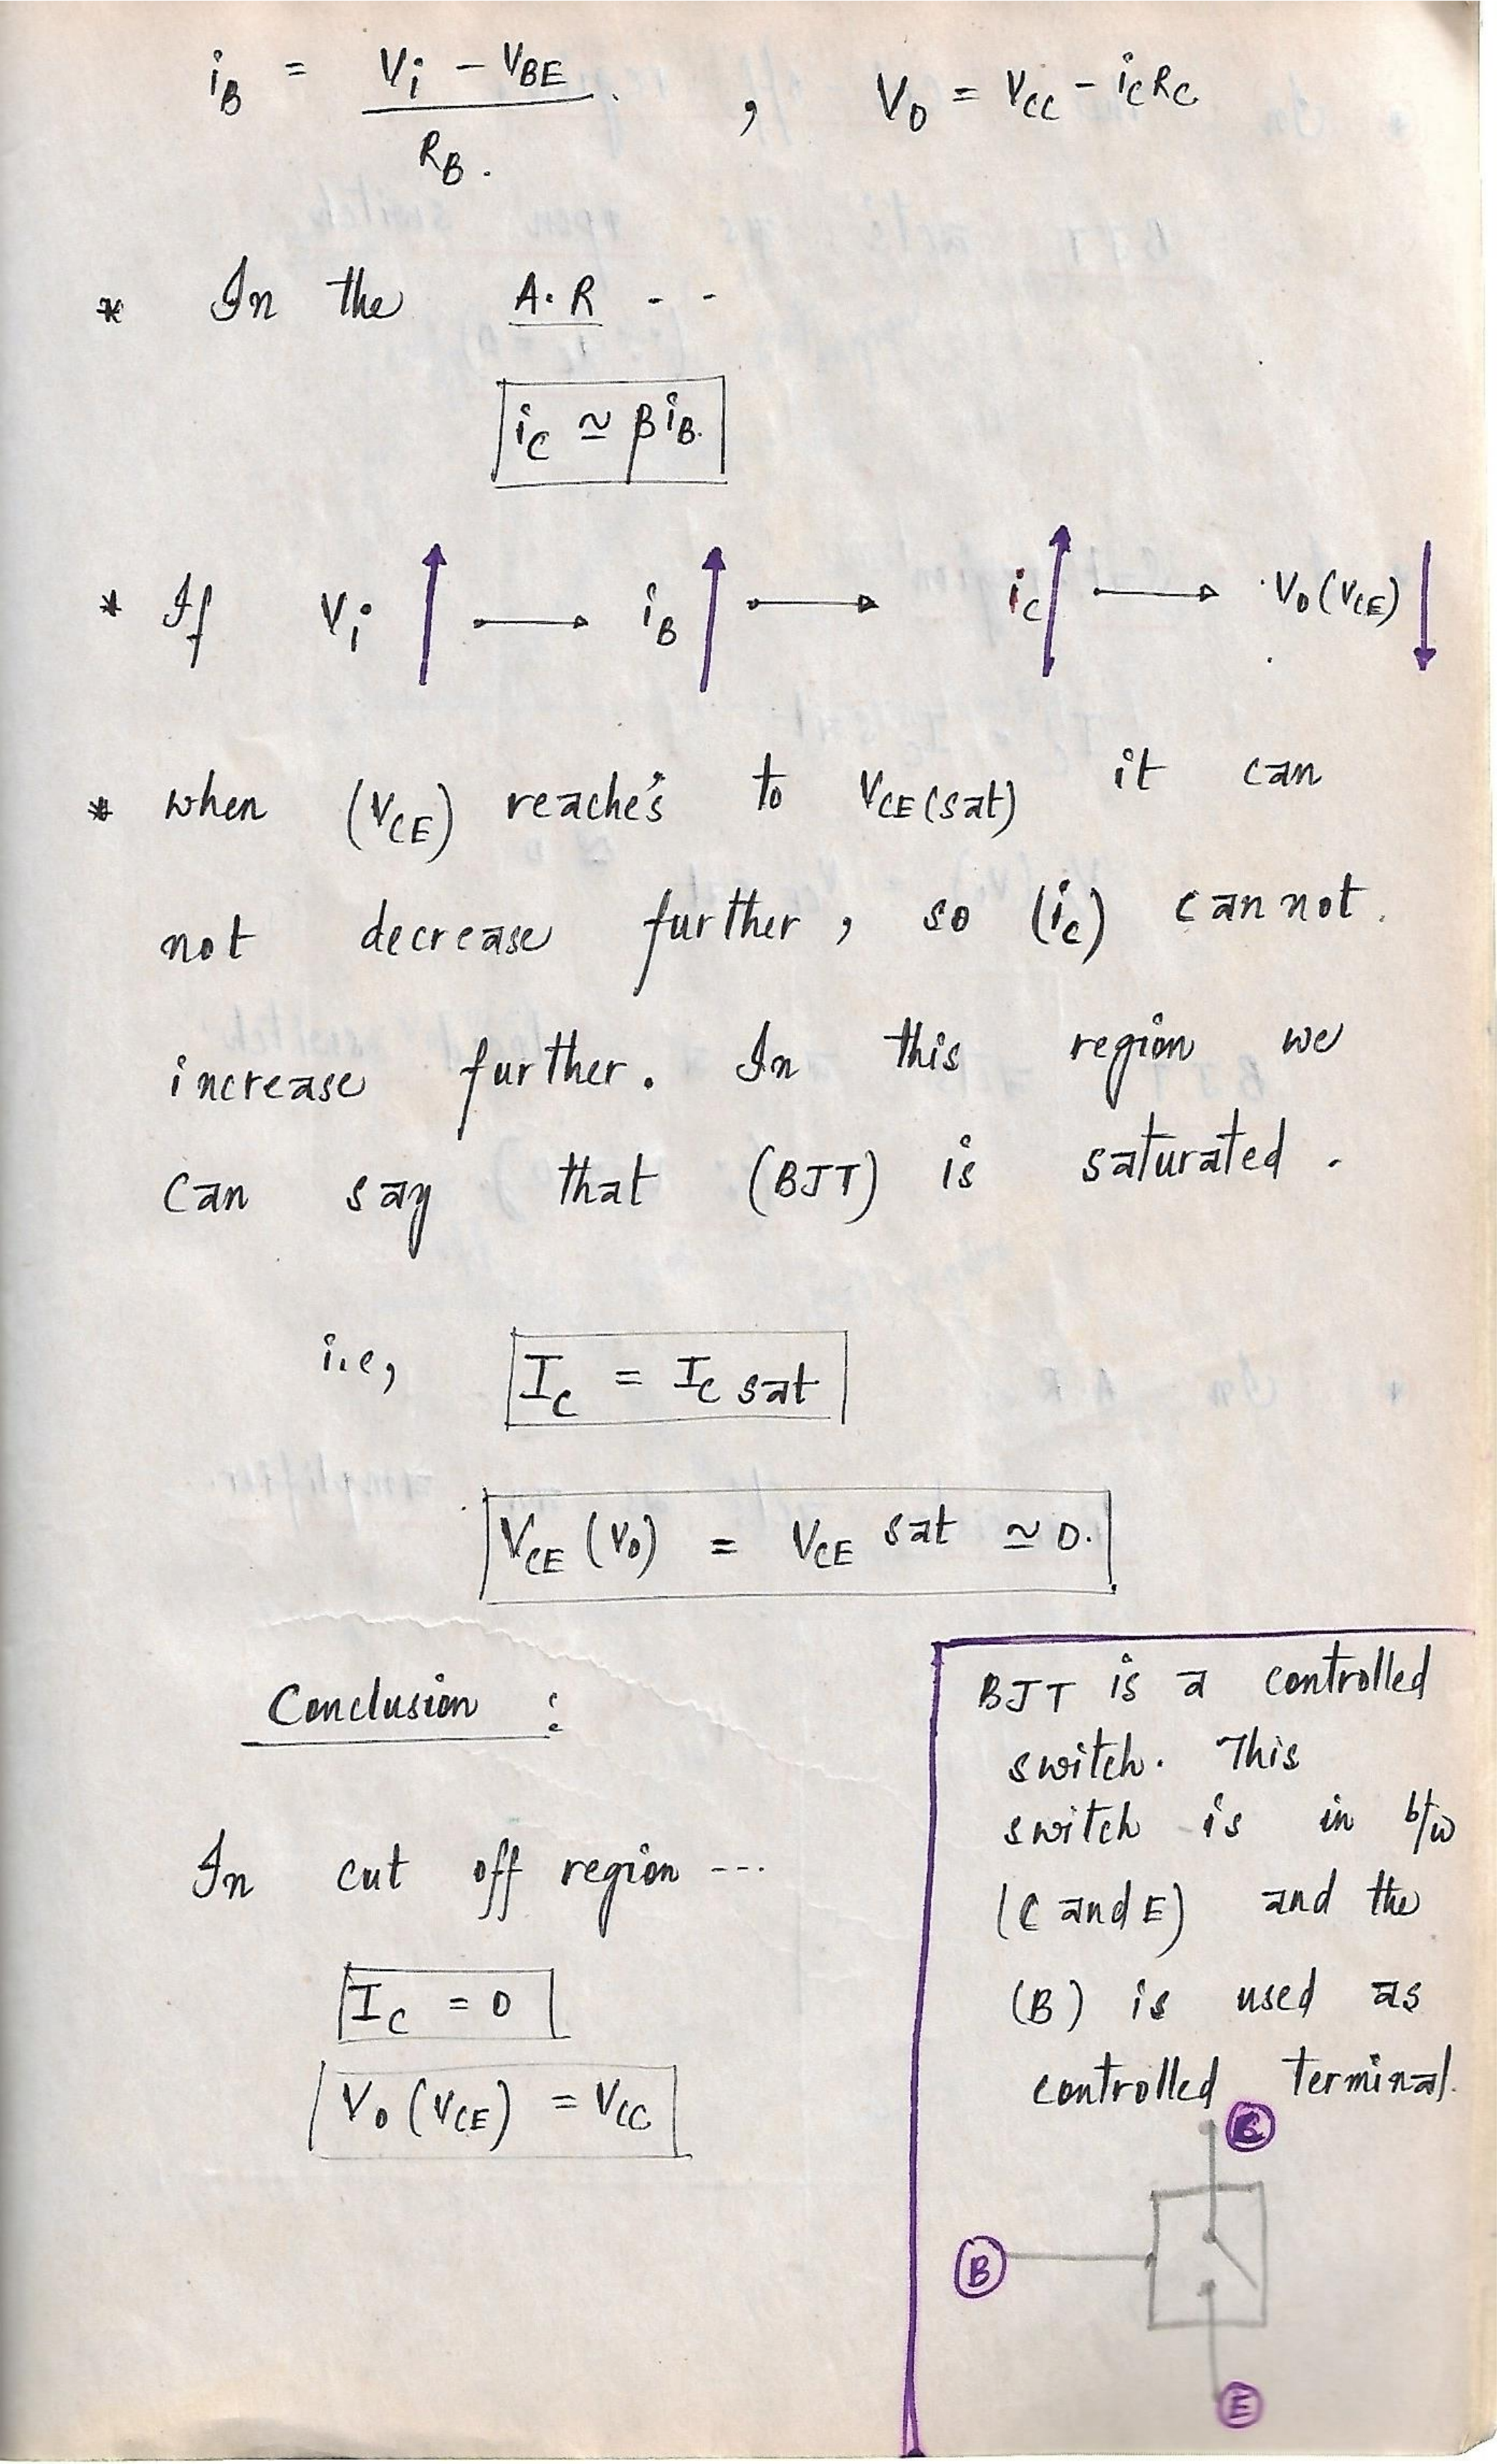 iB = Vi - VBE / RB. , Vo = VCC - iC RC
* In the A.R - -
iC ≃ β iB.
* If Vi ↑ → iB ↑ → iC ↑ → Vo (VCE) ↓
* when (VCE) reaches to VCE (sat) it can
not decrease further, so (ic) can not.
increase further. In this region we
can say that (BJT) is saturated.
i.e, IC = IC sat
VCE (Vo) = VCE sat ≃ 0.
Conclusion :
In cut off region ---
IC = 0
Vo (VCE) = VCC
BJT is a controlled
switch. This
switch is in b/w
(C and E) and the
(B) is used as
controlled terminal.
C
B
E